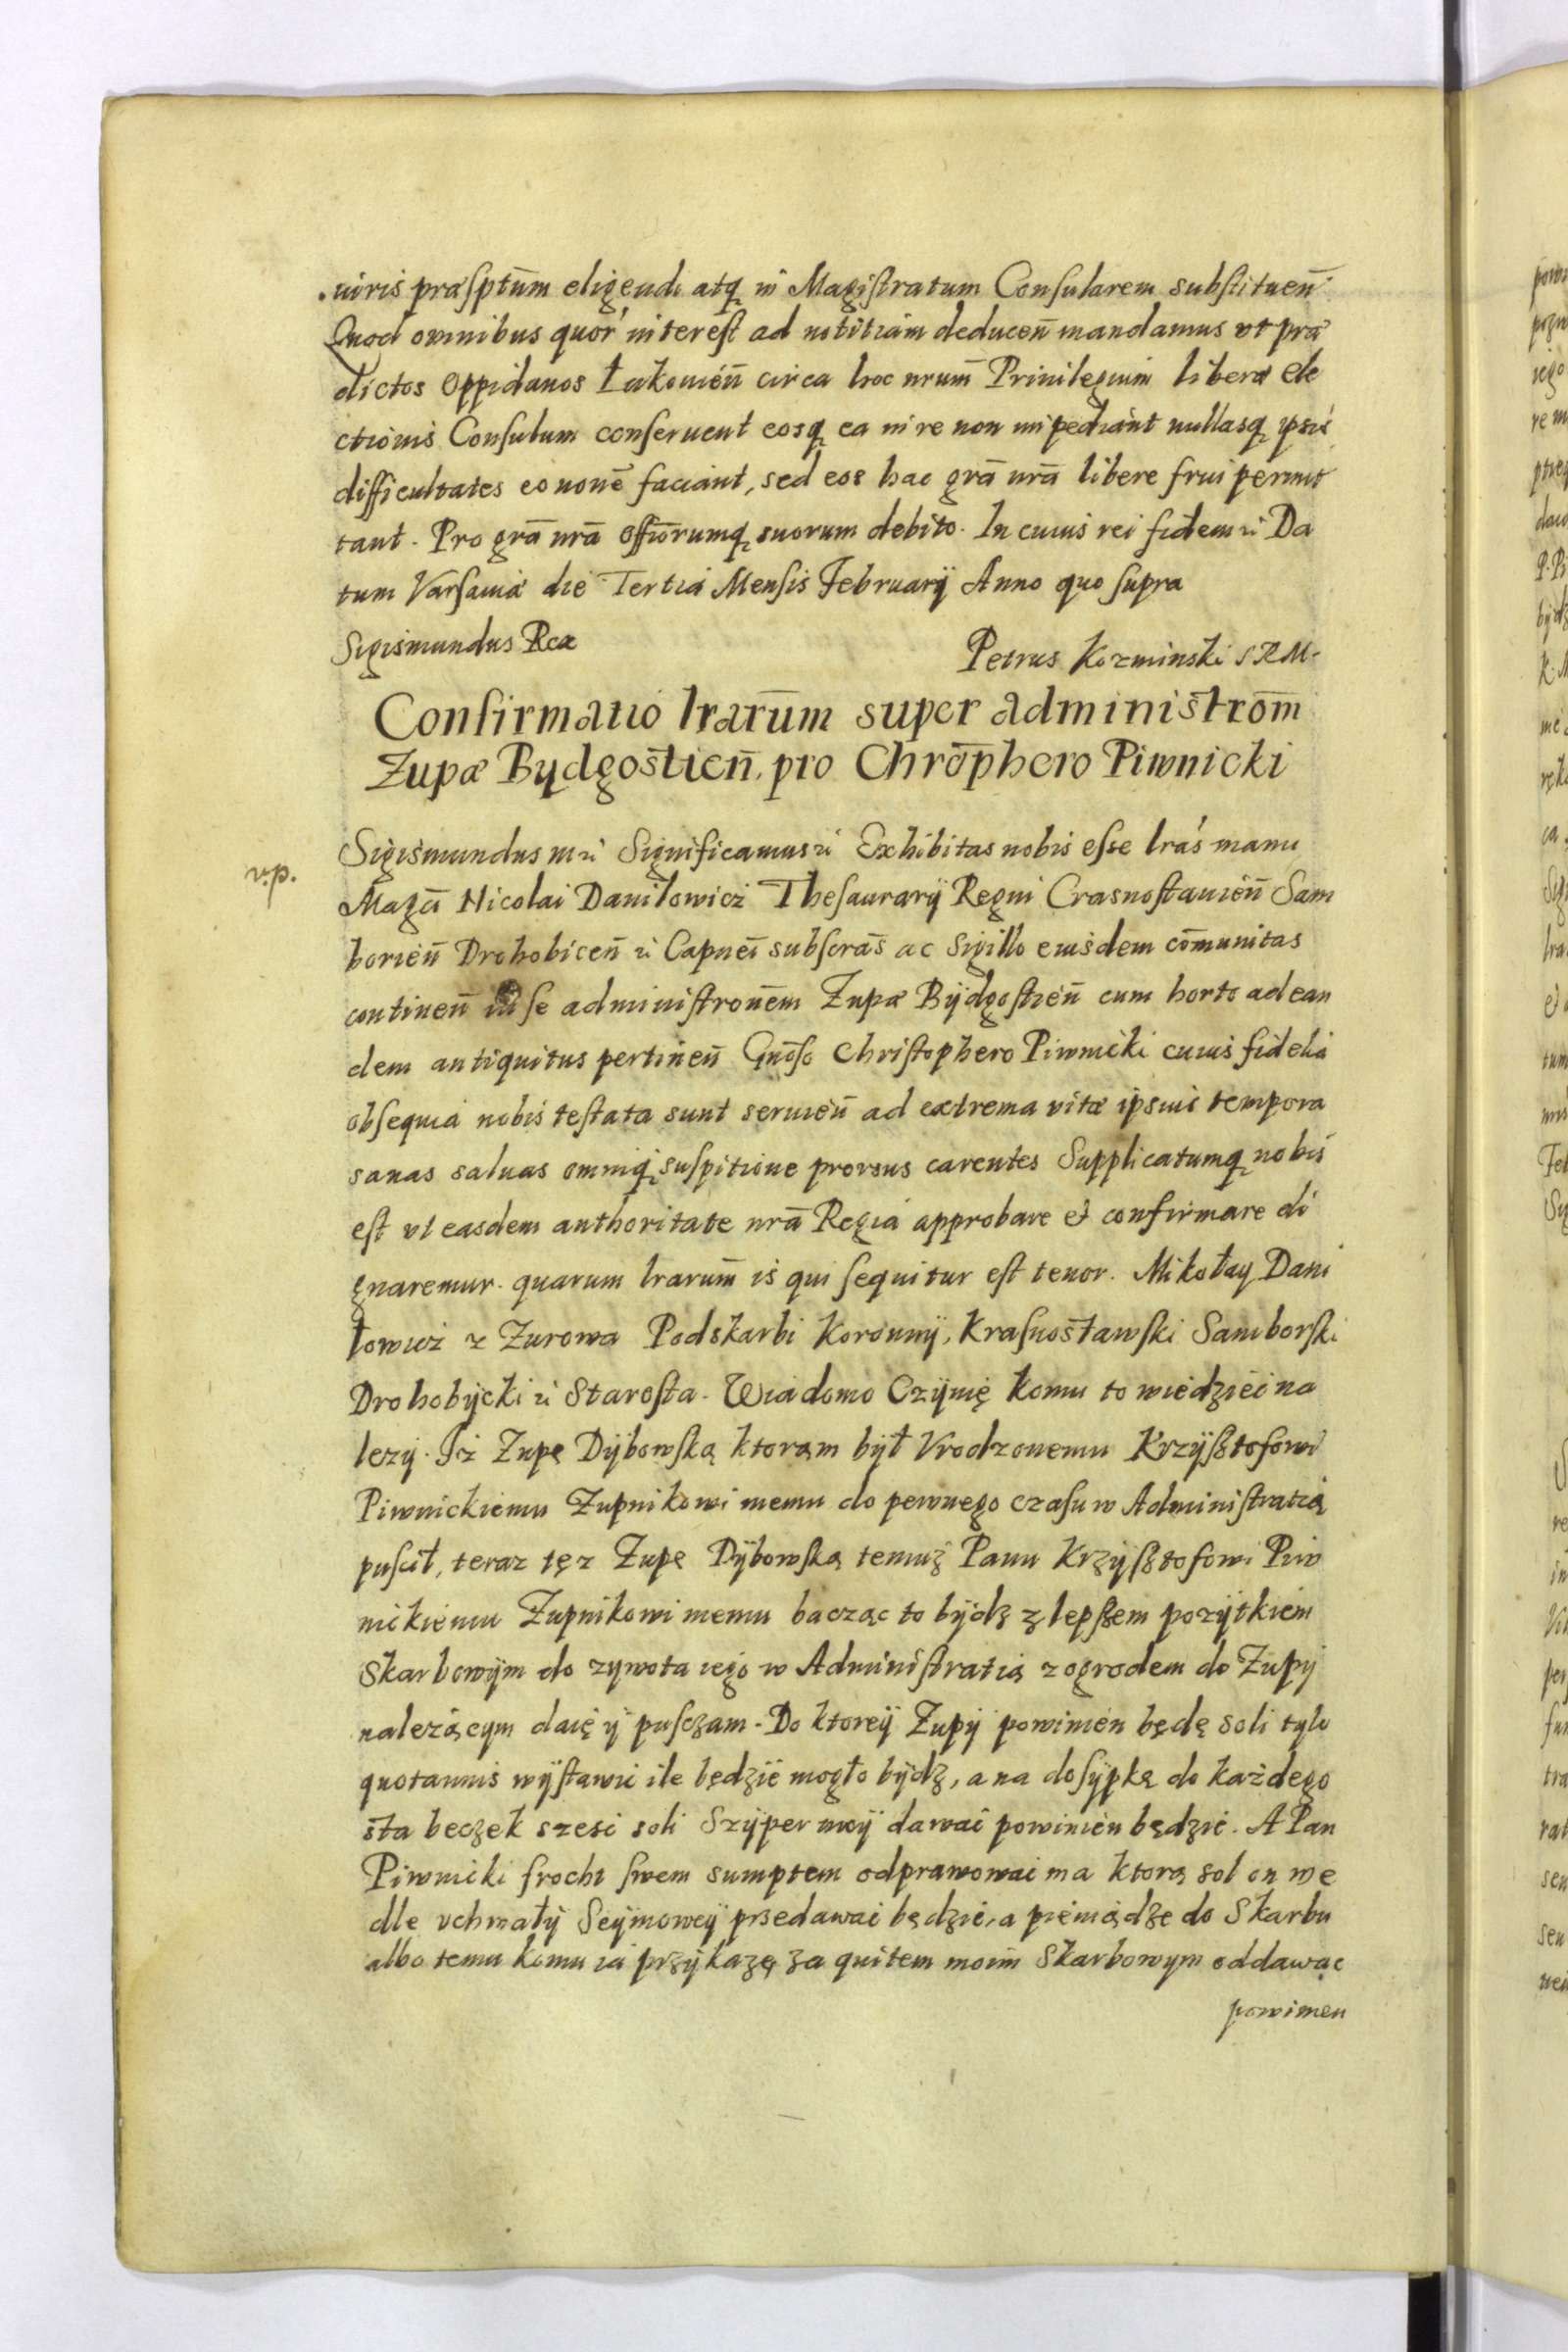 uiris præsptūm eligendi atq in Magistratum Consularem substituen̄.
Quod omnibus quor interest ad notitiam deducen̄ mandamus vt præ
dictos Oppidanos Łukowien̄ circa hoc nrum̄ Priuilegium liberæ ele
ctionis Consulum conseruent eosq ea in re non impediant nullasq ipsis
difficultates eo noiē faciant, sed eos hac grā nrā libere frui permit
tant. Pro grā nrā offiōrumq suorum debito. In cuius rei fidem etc Da
tum Varsauiæ die Tertia Mensis Februarij Anno quo supra
Sigismundus Rex
Petrus Kozminski SRM.
Confirmatio lrarūm super administrom̄
Zupæ Bydgostien̄. pro Chrōphero Piwnicki
v.p.
Sigismundus III etc Significamus etc Exhibitas nobis esse lrás manu
Magcī Nicolai Daniłowicz Thesaurarij Regni Crasnostauien̄ Sam
borien̄ Drohobicen̄ etc Capnei subscrās ac Sigillo eiusdem cōmunitas
continen̄ in se administronēm Zupæ Bÿdgostien̄ cum horto ad ean
dem antiquitus pertinen̄ Gnōso Christophero Piwnicki cuius fidelia
obsequia nobis testata sunt seruien̄ ad extrema vitæ ipsius tempora
sanas saluas omniq suspitione prorsus carentes Supplicatumq nobis
est vt easdem authoritate nrā Regia approbare et confirmare di
gnaremur. quarum lrarum̄ is qui sequitur est tenor. Mikołay Dani
łowicz z Zurowa Podskarbi Koronnÿ, Krasnostawski Samborski
Drohobÿcki etc Starosta. Wiadomo Czÿnię komu to wiedzieć na
lezÿ. Iż Zupę Dÿbowską ktorąm był Vrodzonemu Krzÿsztofowi
Piwnickiemu Zupnikowi memu do pewnego czasu w Administratią
puścił, teraz tęz Zupę Dÿbowską temuz Panu Krzÿsztofowi Piw
nickiemu Zupnikowi memu bacząc to bÿdz z lepszem pozÿtkiem
Skarbowÿm do zywota iego w Administratią z ogrodem do Zupÿ
nalezącym daię ÿ pusczam. Do ktoreÿ Zupÿ powinien będę soli tylo
quotannis wÿstawic ile będzie mogło bÿdz, a na dosÿpkę do każdego
sta beczek szesc soli Szÿper moÿ dawac powinien będzie. A Pan
Piwnicki frocht swem sumptem odprawowac ma ktorą sol on we
dle vchwałÿ Seÿmoweÿ przedawac będzie, a pieniądze do Skarbu
albo temu komu ia przÿkazę za quitem moim Skarbowym oddawac
powinien